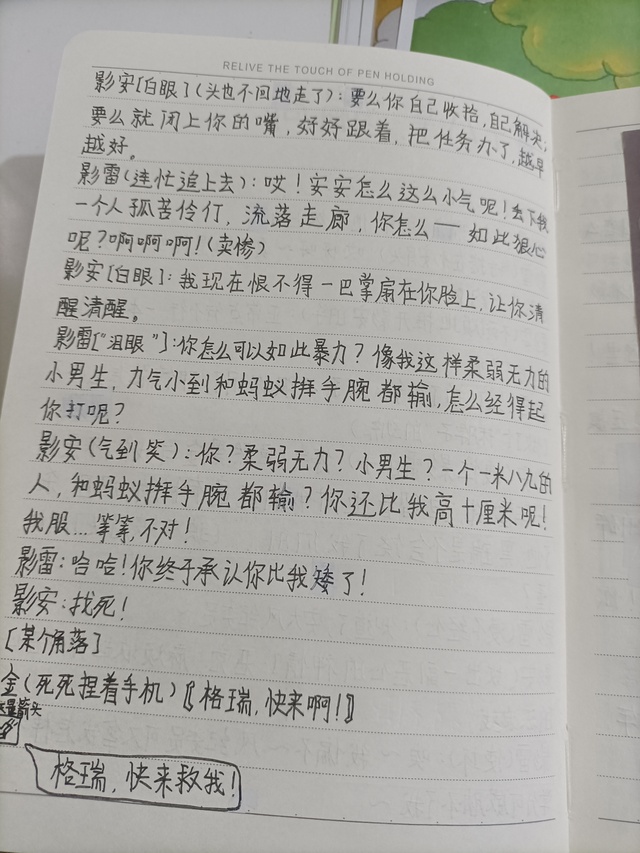 RELIVE THE TOUCH OF PEN HOLDING
影安[白眼](头也不回地走了):要么你自己收拾,自己解决,
要么就闭上你的嘴,好好跟着,把任务办了,越早
越好。
影雷(连忙追上去):哎!安安怎么这么小气呢!丢下我
一个人孤苦伶仃,流落走廊,你怎么——如此狠心
呢?啊啊啊!(卖惨)
影安[白眼]:我现在恨不得一巴掌扇在你脸上,让你清
醒清醒。
影雷["泪眼"]:你怎么可以如此暴力?像我这样柔弱无力的
小男生,力气小到和蚂蚁掰手腕都输,怎么经得起
你打呢?
影安(气到笑):你?柔弱无力?小男生?一个一米八九的
人,和蚂蚁掰手腕都输?你还比我高十厘米呢!
我服...等等,不对!
影雷:哈哈!你终于承认你比我矮了!
影安:找死!
[某个角落]
金(死死捏着手机)〖格瑞,快来啊!〗
箭头
格瑞,快来救我!